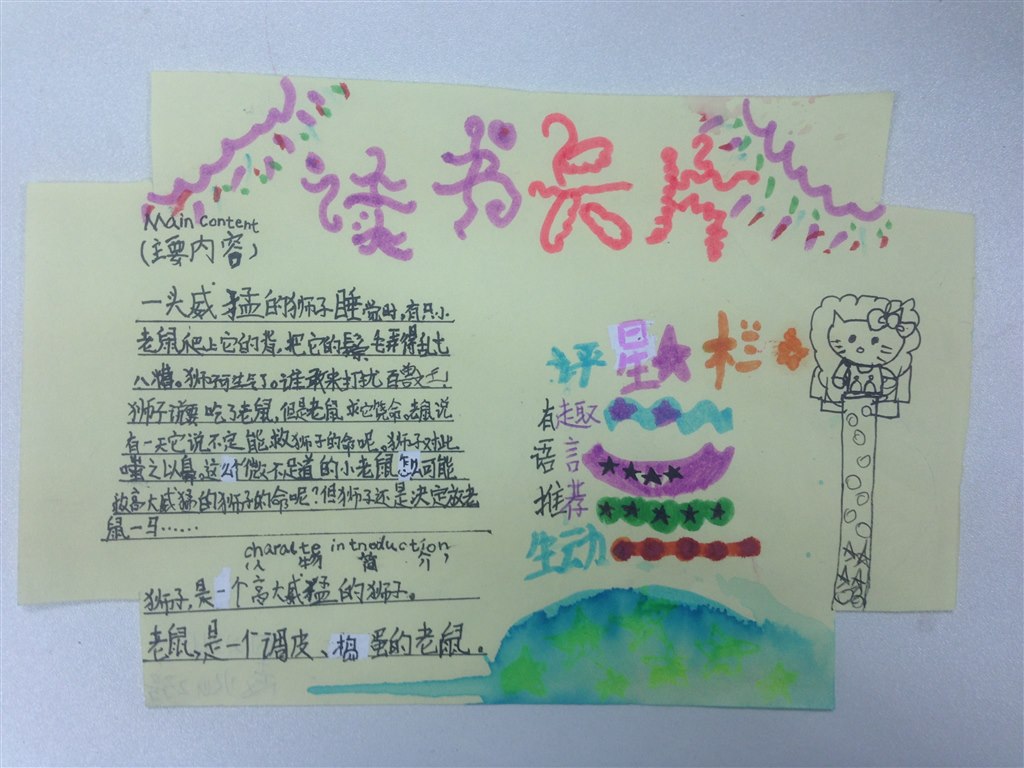 读书长廊
Main Content
(主要内容)
一头威猛的狮子睡觉时,有只小
老鼠爬上它的背,把它的鬃毛弄得乱七
八糟。狮子可生气了。谁敢来打扰百兽之王!
狮子说要吃了老鼠,但是老鼠求它饶命。老鼠说
有一天它说不定能救狮子的命呢。狮子对此
嗤之以鼻。这么个微不足道的小老鼠怎么可能
救高大威猛的狮子的命呢?但狮子还是决定放老
鼠一马……
charalte introduction
(人物简介)
狮子,是一个高大威猛的狮子。
老鼠,是一个调皮、捣蛋的老鼠。
评星★栏
有趣
语言
推荐
生动